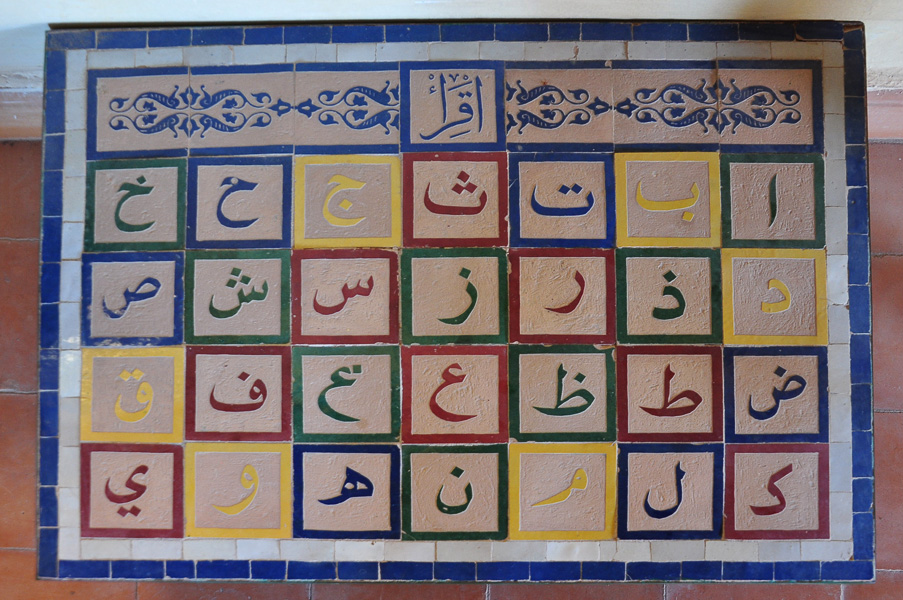 اقرأ
ا ب ت ث ج ح خ
د ذ ر ز س ش ص
ض ط ظ ع غ ف ق
ك ل م ن هـ و ي